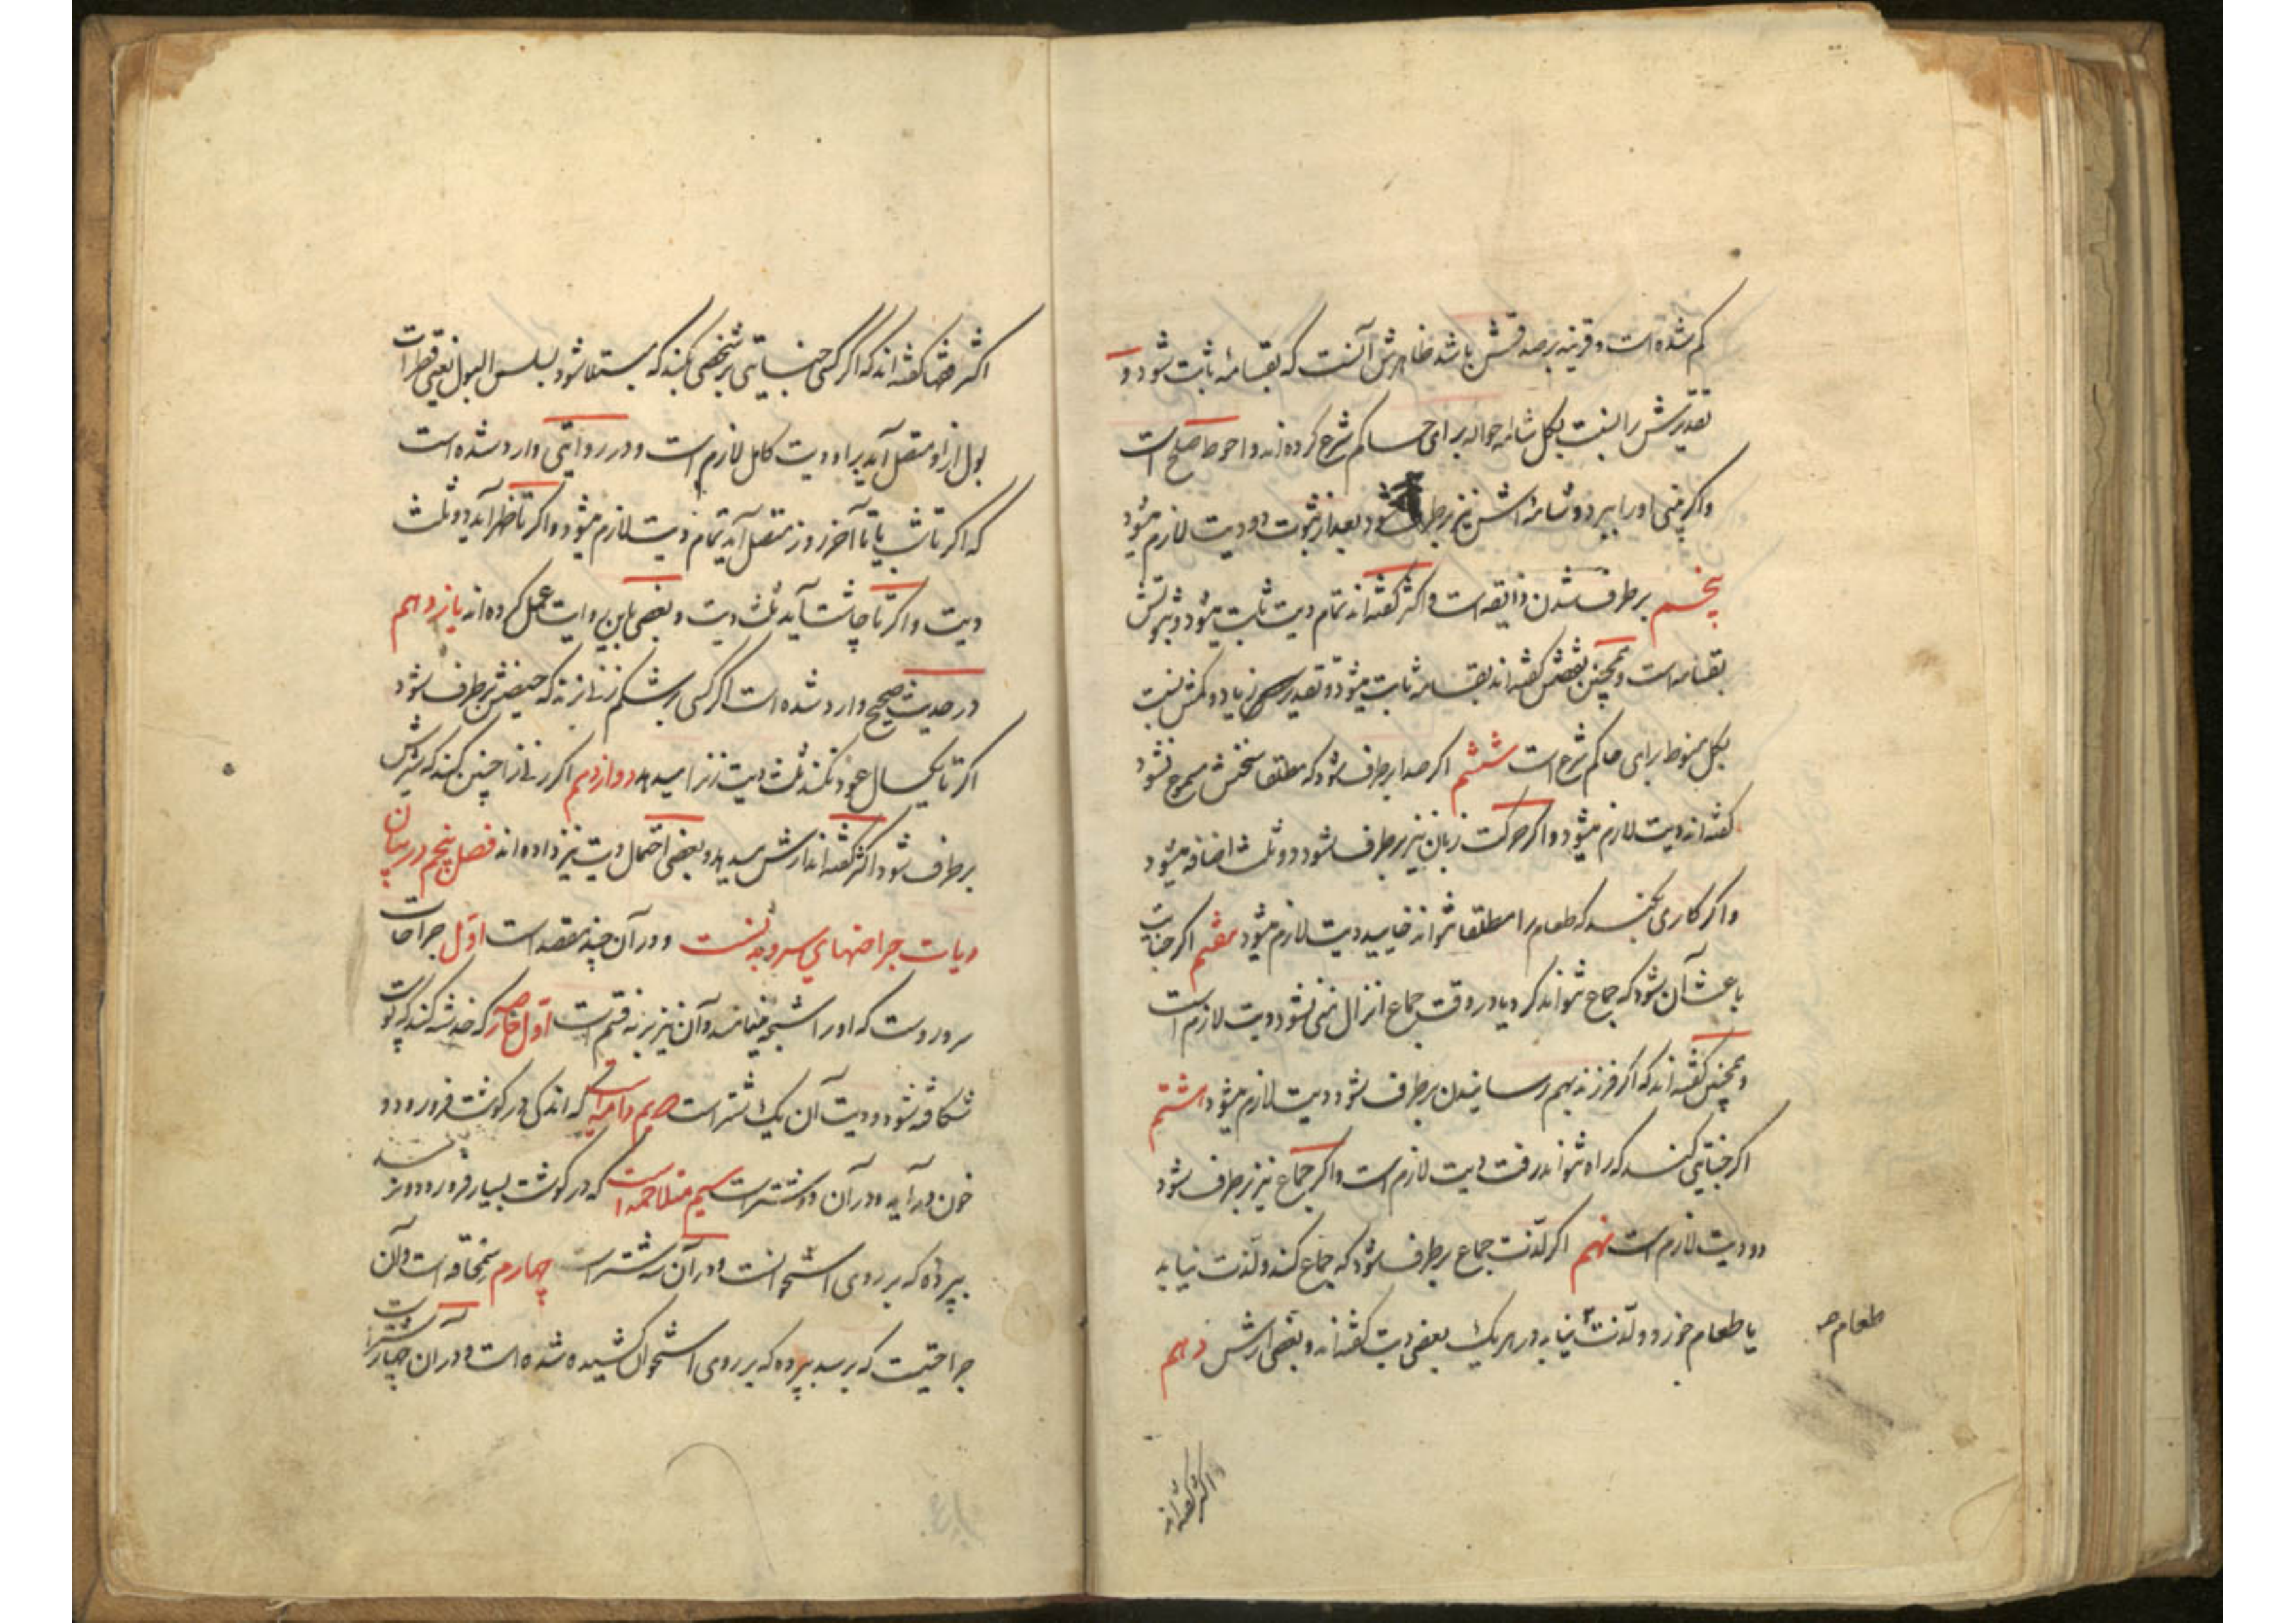 کم شده است و قرینه بر صدقش باشد ظاهرش آنست که بقسامه ثابت شود و
تقدیرش را بنسبت بکل شامه حواله برای حاکم شرع کرده‌اند و احوط صلح است
و اگر بینی او را ببرد و شامه‌اش نیز برطرف شود بعد از ثبوت دو دیت لازم میشود
پنجم برطرف شدن ذایقه است و اکثر گفته‌اند تمام دیت ثابت میشود و ثبوتش
بقسامه است و همچنین بعضش گفته‌اند بقسامه ثابت میشود و تقدیر زیاد و کمش بنسبت
بکل منوط برای حاکم شرع است ششم اگر صدا برطرف شود که مطلقا سخنش مسموع نشود
گفته‌اند دیت لازم میشود و اگر حرکت زبان نیز برطرف شود دو ثلث اضافه میشود
و اگر کاری بکنند که طعام را مطلقا نتواند خایید دیت لازم میشود هفتم اگر جنایت
باعث آن شود که جماع نتواند کرد یا در وقت جماع انزال منی نشود دیت لازم است
و همچنین گفته‌اند که اگر فرزند بهم رسانیدن برطرف شود دیت لازم میشود هشتم
اگر جنایتی کنند که راه نتواند رفت دیت لازم است و اگر جماع نیز برطرف شود
دو دیت لازم است نهم اگر لذت جماع برطرف شود که جماع کند و لذت نیابد
یا طعام خورد و لذت نیابد در هر یک بعضی دیت گفته‌اند و بعضی ارش دهم
طعام صح
اکثر گفته‌اند
اکثر فقها گفته‌اند که اگر کسی جنایتی بر شخصی بکند که مبتلا شود بسلس البول یعنی قطرات
بول از او متصل آید بر او دیت کامل لازم است و در روایتی وارد شده است
که اگر تا شب یا تا آخر روز متصل آید تمام دیت لازم میشود و اگر تا ظهر آید دو ثلث
دیت و اگر تا چاشت آید ثلث دیت و بعضی باین روایت عمل کرده‌اند یازدهم
در حدیث صحیح وارد شده است اگر کسی بر شکم زنی بزند که حیضش برطرف شود
اگر تا یکسال عود نکند ثلث دیت زنرا میدهد دوازدهم اگر زنی را چنین کند که شیرش
برطرف شود اکثر گفته‌اند ارش میدهد و بعضی احتمال دیت نیز داده‌اند فصل پنجم در بیان
دیات جراحتهای سر و بدنست و در آن چند مقصد است اول جراحات
سر و روست که او را شجه مینامند و آن نیز بر نه قسم است اول حارصه که خدشه کند که پوست
شکافته شود و دیت آن یک شتر است دویم دامیه است که اندکی در گوشت فرو رود و
خون درآید و در آن دو شتر است سیم متلاحمه است که در گوشت بسیار فرو رود و نرسد
بپرده که بر روی استخوانست و در آن سه شتر است چهارم سمحاقه است و آن
جراحتیست که برسد بپرده که بر روی استخوان کشیده شده است و در آن چهار شتر است